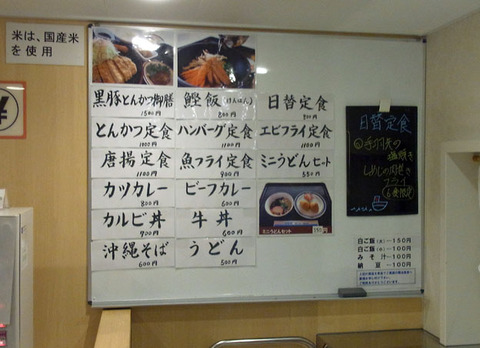 米は、国産米
を使用
¥
黒豚とんかつ御膳
1500円
とんかつ定食
1000円
唐揚定食
1100円
カツカレー
800円
カルビ丼
900円
沖縄そば
600円
鰹飯(けんぱん)
800円
ハンバーグ定食
1100円
魚フライ定食
900円
ビーフカレー
600円
牛丼
600円
うどん
500円
日替定食
エビフライ定食
1100円
ミニうどんセット
550円
ミニうどんセット
550円
日替定食
白ご飯(大)―150円
白ご飯(小)―100円
みそ汁―100円
納豆―100円